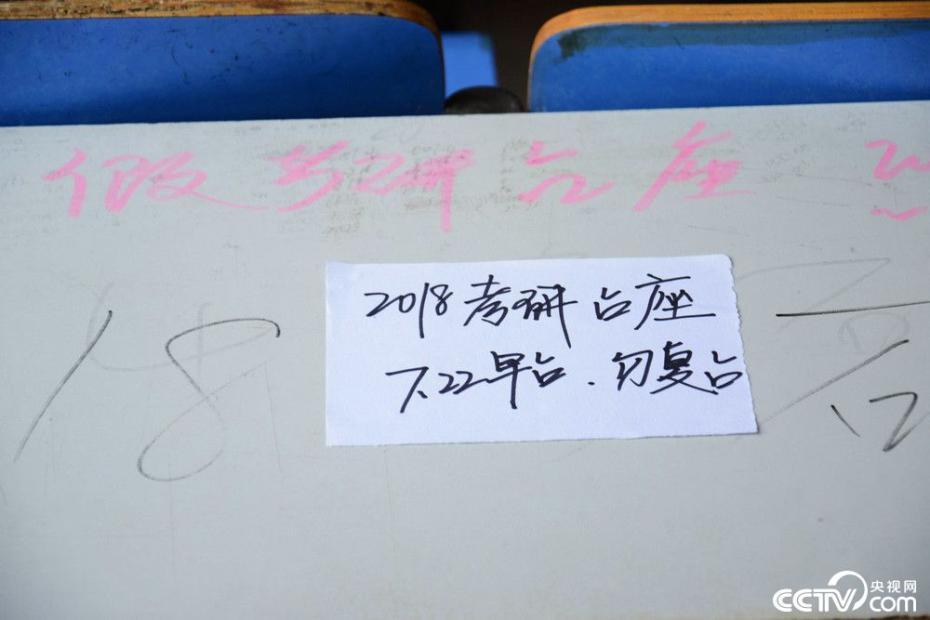 假考研占座
2018考研占座
7.22早占.勿复占
18
占
央视网
CCTV.com